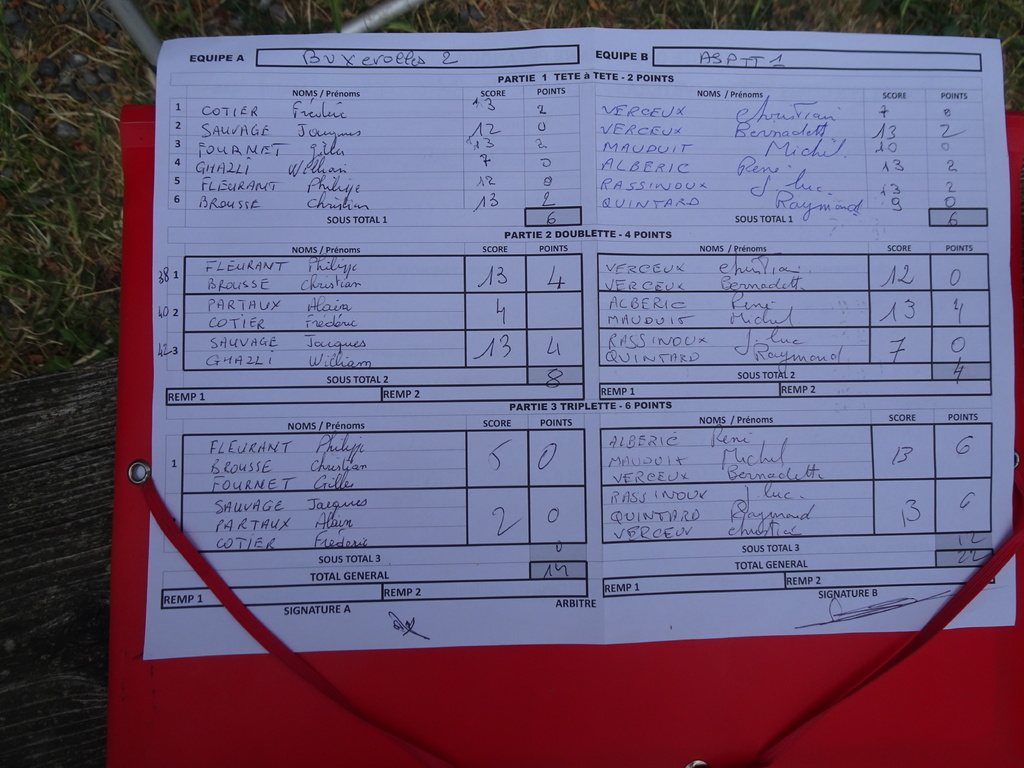 EQUIPE A Buxerolles 2 EQUIPE B ASPTT 1
PARTIE 1 TETE à TETE - 2 POINTS
NOMS / Prénoms SCORE POINTS NOMS / Prénoms SCORE POINTS
1 COTIER Frédéric 13 2 VERCEUX Christian 7 0
2 SAUVAGE Jacques 12 0 VERCEUX Bernadett 13 2
3 FOURNET Gilles 13 2 MAUDUIT Michel 10 0
4 GHAZLI William 7 0 ALBERIC René 13 2
5 FLEURANT Philippe 12 0 RASSINOUX J. luc 13 2
6 BROUSSE Christian 13 2 QUINTARD Raymond 9 0
SOUS TOTAL 1 6 SOUS TOTAL 1 6
PARTIE 2 DOUBLETTE - 4 POINTS
NOMS / Prénoms SCORE POINTS NOMS / Prénoms SCORE POINTS
38 1 FLEURANT Philippe 13 4 VERCEUX Christian 12 0
BROUSSE Christian VERCEUX Bernadett
40 2 PARTAUX Alain 4 ALBERIC René 13 4
COTIER Frédéric MAUDUIT Michel
42 3 SAUVAGE Jacques 13 4 RASSINOUX J. luc 7 0
GHAZLI William QUINTARD Raymond
SOUS TOTAL 2 8 SOUS TOTAL 2 4
REMP 1 REMP 2 REMP 1 REMP 2
PARTIE 3 TRIPLETTE - 6 POINTS
NOMS / Prénoms SCORE POINTS NOMS / Prénoms SCORE POINTS
FLEURANT Philippe ALBERIC René
1 BROUSSE Christian 5 0 MAUDUIT Michel 13 6
FOURNET Gilles VERCEUX Bernadette
SAUVAGE Jacques RASSINOUX J. luc.
PARTAUX Alain 2 0 QUINTARD Raymond 13 6
COTIER Frédéric VERCEUX
SOUS TOTAL 3 0 SOUS TOTAL 3 12
TOTAL GENERAL 14 TOTAL GENERAL 22
REMP 1 REMP 2 REMP 1 REMP 2
SIGNATURE A ARBITRE SIGNATURE B